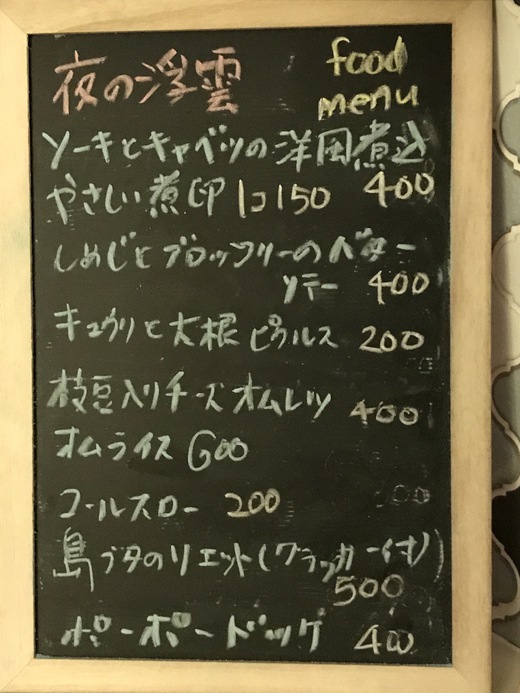 夜の浮雲 food menu
ソーキとキャベツの洋風煮込 400
やさしい煮卵 1コ150
しめじとブロッコリーのバター
ソテー 400
キュウリと大根ピクルス 200
枝豆入りチーズオムレツ 400
オムライス 600
コールスロー 200
島ブタのリエット(クラッカー付)
500
ポーポードッグ 400